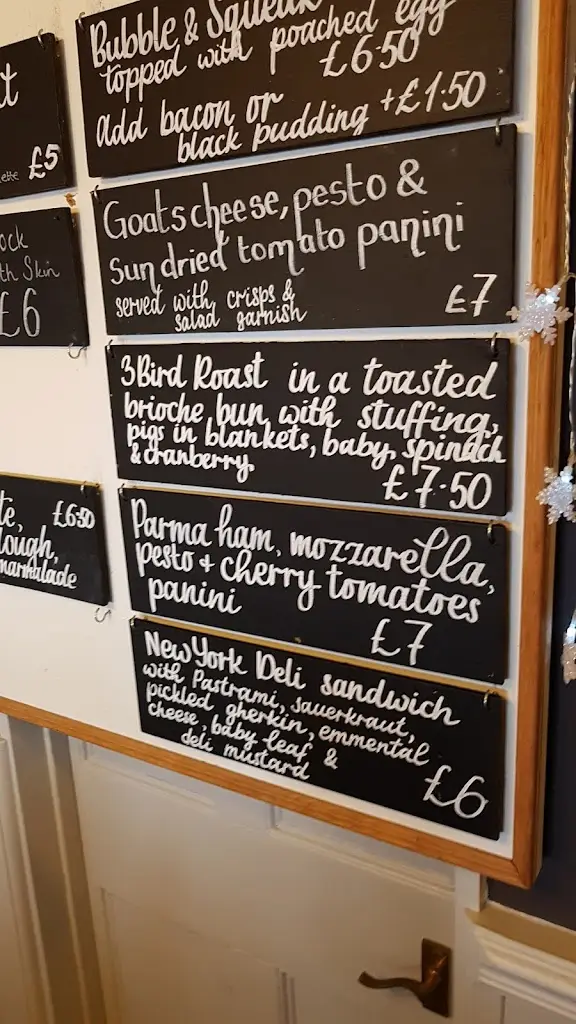 £5
ock
th Skin
£6
te, £6.50
lough,
marmalade
Bubble & Squeak
topped with poached egg
£6.50
Add bacon or
black pudding +£1.50
Goats cheese, pesto &
Sun dried tomato panini
served with crisps &
salad garnish
£7
3 Bird Roast in a toasted
brioche bun with stuffing,
pigs in blankets, baby spinach
& cranberry.
£7.50
Parma ham, mozzarella,
pesto + cherry tomatoes
panini
£7
New York Deli sandwich
with Pastrami, sauerkraut,
pickled gherkin, emmental
cheese, baby leaf &
deli mustard
£6